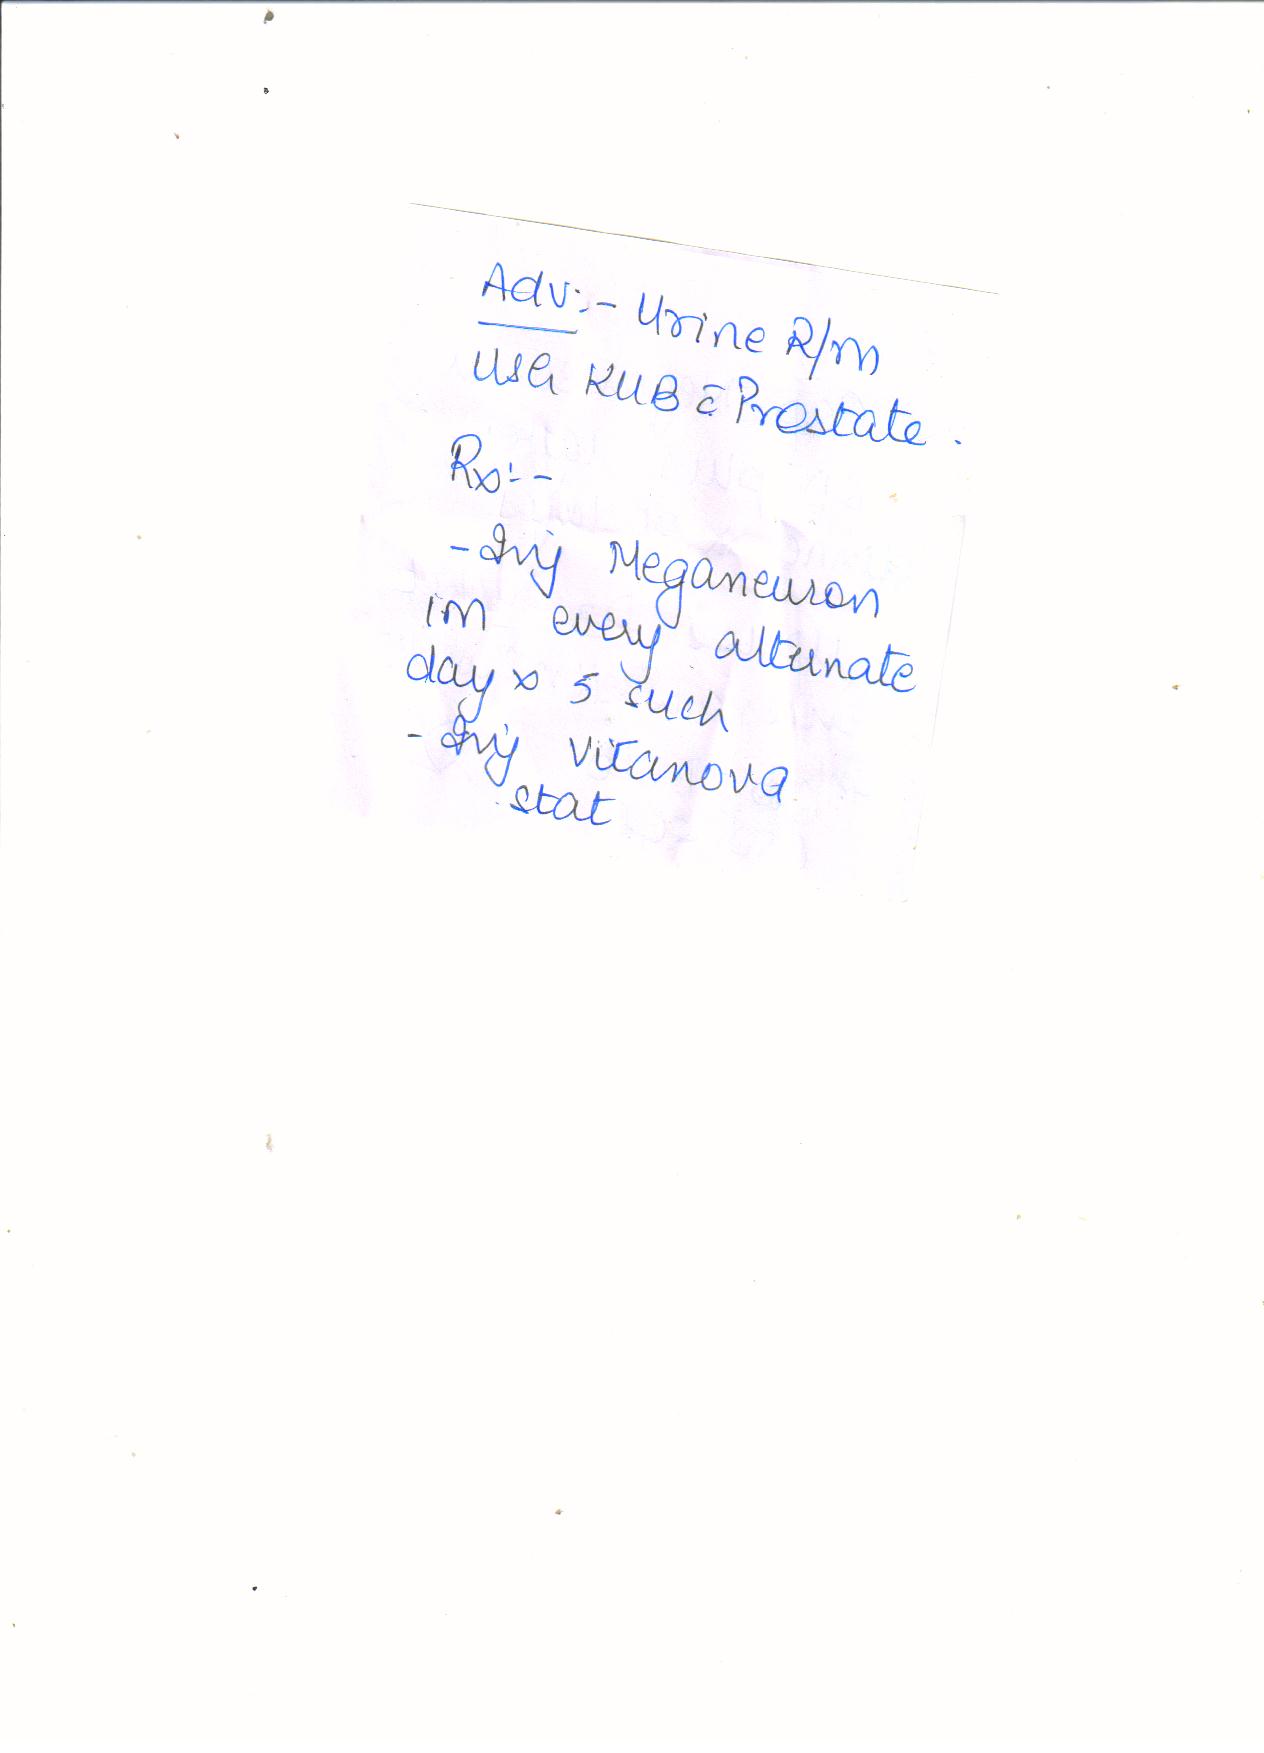 Adv:- Urine R/m
USG KUB c̄ Prostate.
Rx:-
- Inj Meganeuron
IM every alternate
day x 5 such
- Inj Vitanova
stat